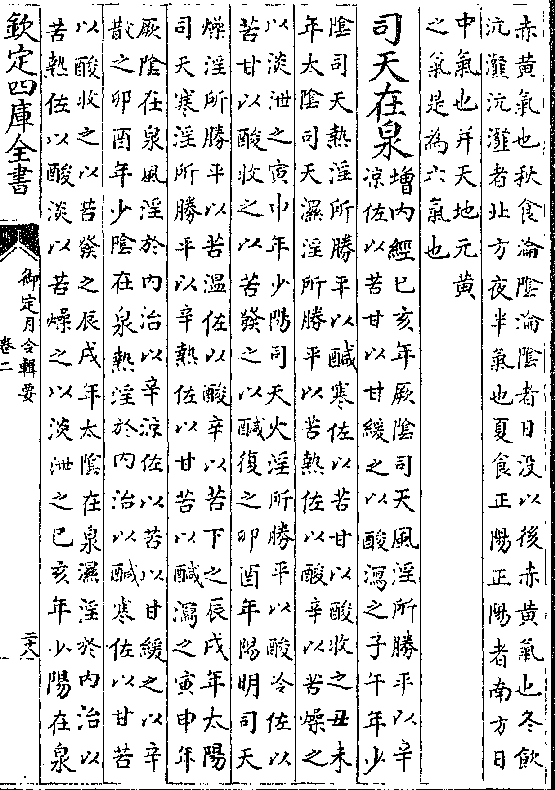 赤黄氣也秋食淪陰淪陰者日没以後赤黄氣也冬飲
沆瀣沆瀣者北方夜半氣也夏食正陽正陽者南方日
中氣也并天地元黄
之氣是為六氣也
司天在泉
增内經巳亥年厥陰司天風淫所勝平以辛
涼佐以苦甘以甘緩之以酸瀉之子午年少
陰司天熱淫所勝平以鹹寒佐以苦甘以酸收之丑未
年太陰司天濕淫所勝平以苦熱佐以酸辛以苦燥之
以淡泄之寅申年少陽司天火淫所勝平以酸冷佐以
苦甘以酸收之以苦發之以鹹復之卯酉年陽明司天
燥淫所勝平以苦温佐以酸辛以苦下之辰戌年太陽
司天寒淫所勝平以辛熱佐以甘苦以鹹瀉之寅申年
厥陰在泉風淫於内治以辛涼佐以苦以甘緩之以辛
散之卯酉年少陰在泉熱淫於内治以鹹寒佐以甘苦
以酸收之以苦發之辰戌年太陰在泉濕淫於内治以
苦熱佐以酸淡以苦燥之以淡泄之巳亥年少陽在泉
欽定四庫全書
御定月令輯要
卷二
二十八